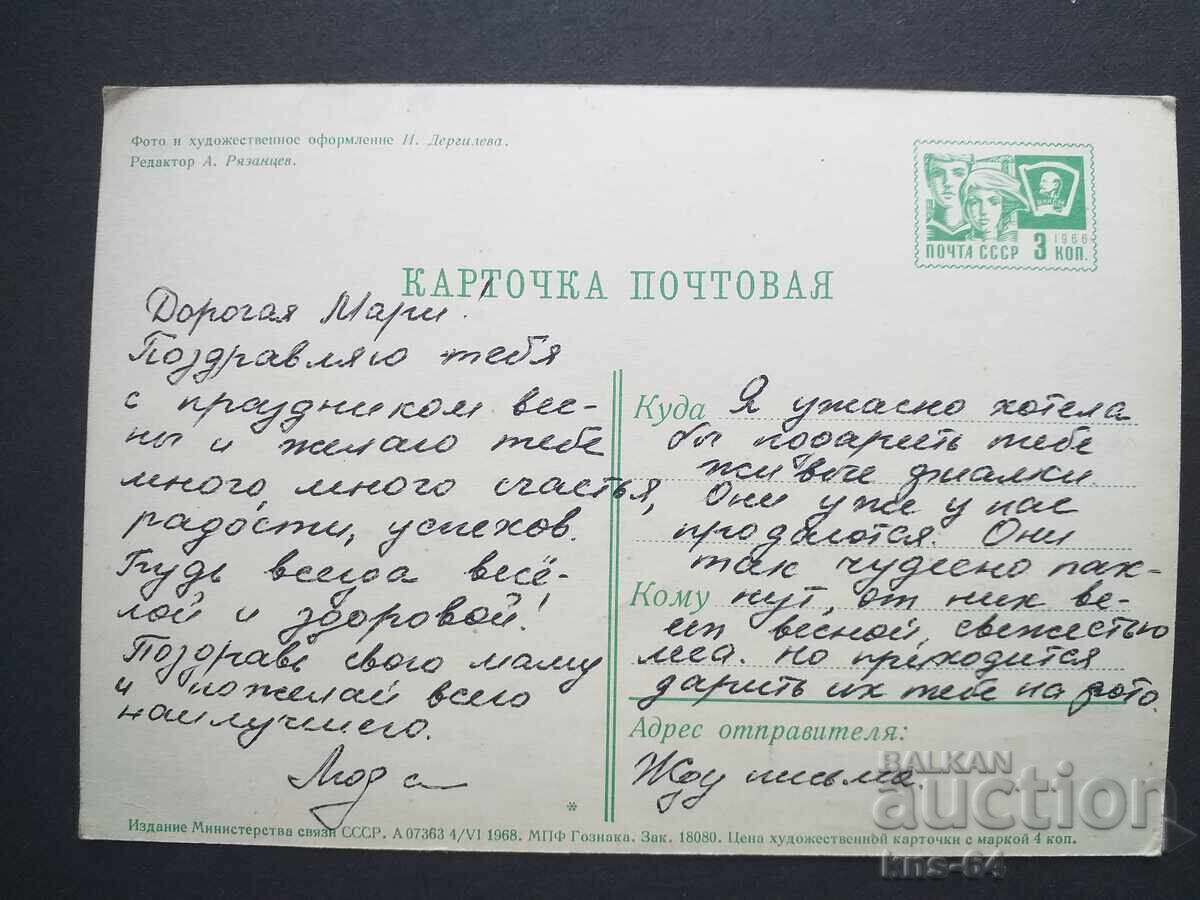 Фото и художественное оформление И. Дергилева.
Редактор А. Рязанцев.
ВЛКСМ
1966
ПОЧТА СССР 3 КОП.
КАРТОЧКА ПОЧТОВАЯ
Дорогая Маги!
Поздравляю тебя
с праздником вес-
ны и желаю тебе
много, много счастья,
радости, успехов.
Будь всегда весё-
лой и здоровой!
Поздравь свою маму
и пожелай всего
наилучшего.
Люда
Куда
Я ужасно хотела
бы подарить тебе
живые фиалки.
Они уже у нас
продаются. Они
так чудесно пах-
Кому
нут, от них ве-
ет весной, свежестью
леса. Но приходится
дарить их тебе на фото.
Адрес отправителя:
Жду письма.
*
Издание Министерства связи СССР. А 07363 4/VI 1968. МПФ Гознака. Зак. 18080. Цена художественной карточки с маркой 4 коп.
BALKAN
auction
kns-64